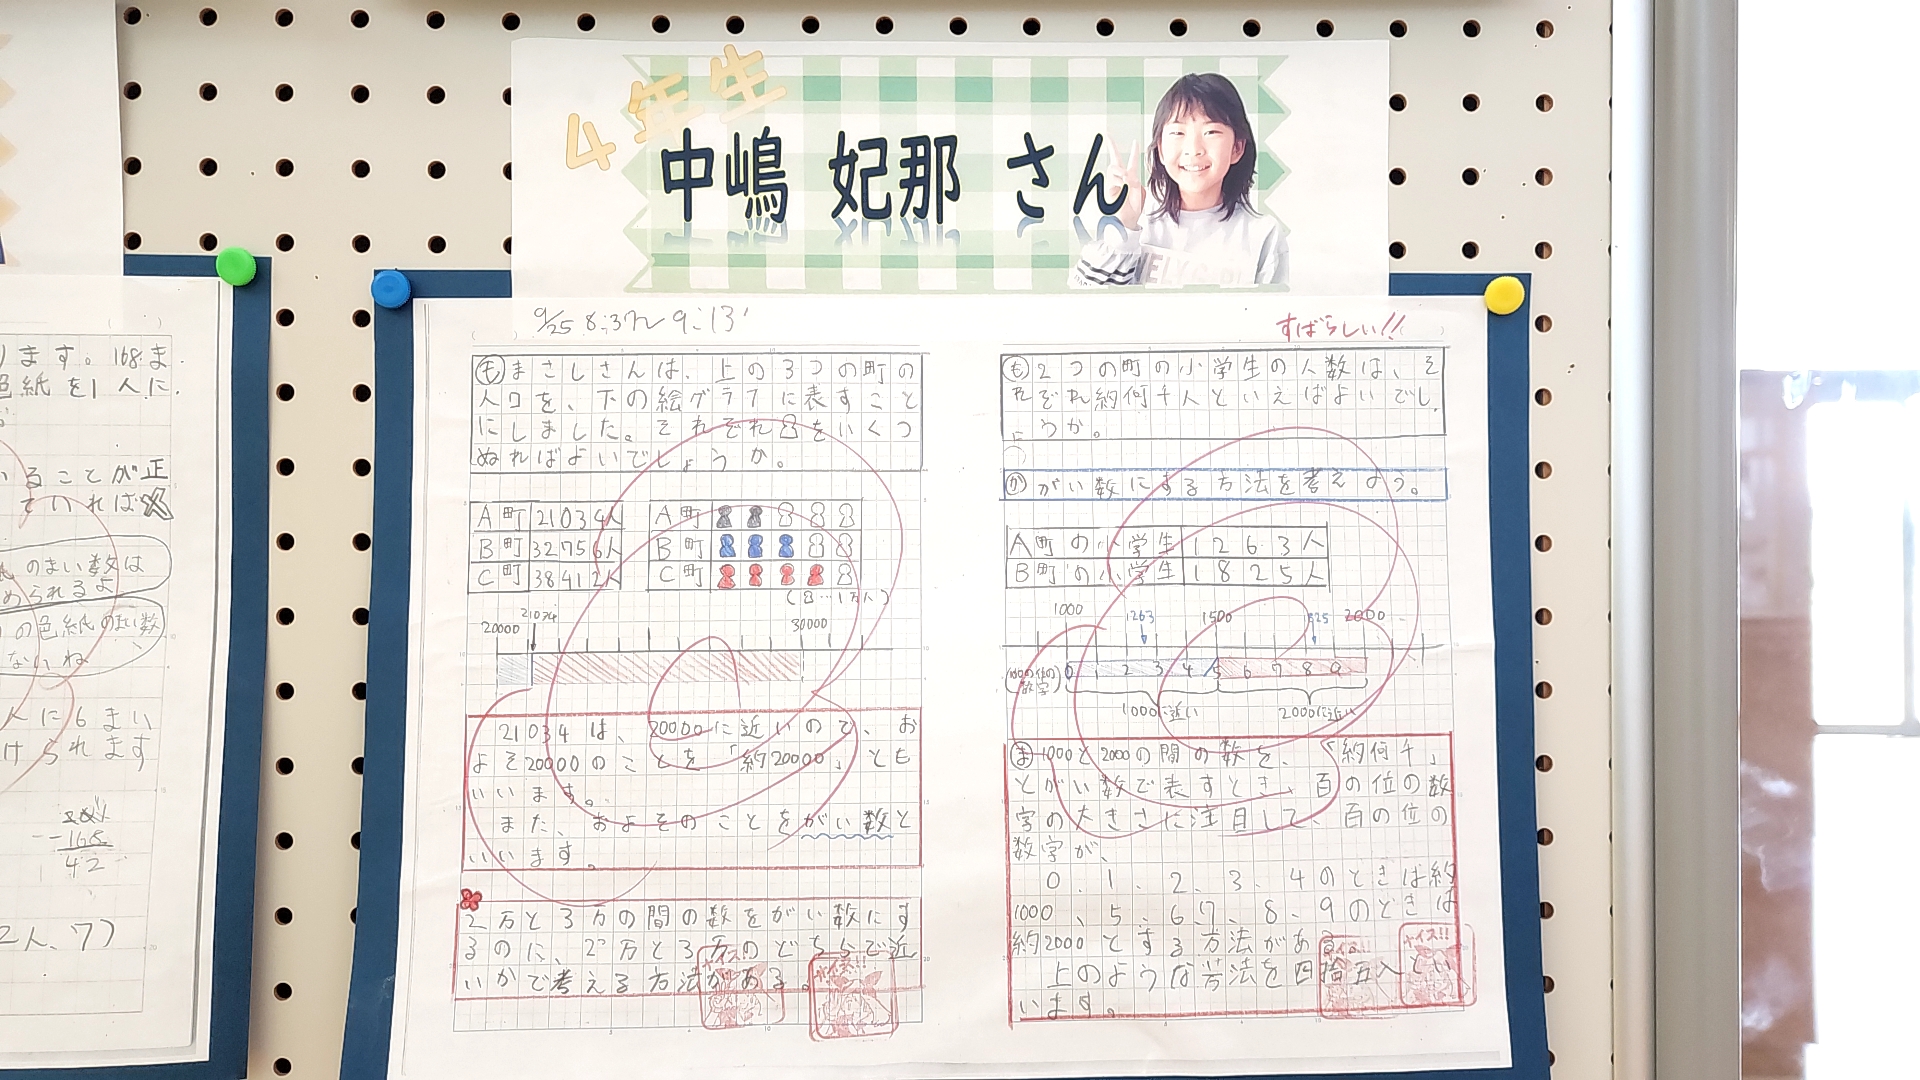 4年生
中嶋 妃那 さん
ります。168ま
色紙を1人に
いることが正
ていれば
のまい数は
められるよ
の色紙のまい数
ないね
人に6まい
けられます
-168
42
2人、7)
9/25 8:37〜9:13'
もまさしさんは、上の3つの町の
人口を、下の絵グラフに表すこと
にしました。それぞれ をいくつ
ぬればよいでしょうか。
A町 21034人
B町 32756人
C町 38412人
A町
B町
C町
( …1万人)
21034
20000 30000
21034は、20000に近いので、お
よそ20000のことを「約20000」とも
いいます。
また、およそのことをがい数と
いいます。
2万と3万の間の数をがい数にす
るのに、2万と3万のどちらで近
いかで考える方法がある。
ナイス!!
ナイス!!
すばらしい!!
も2つの町の小学生の人数は、そ
れぞれ約何千人といえばよいでし
ょうか。
かがい数にする方法を考えよう。
A町の小学生 1263人
B町の小学生 1825人
1000 1263 1500 1825 2000
(百の位の数字) 0 1 2 3 4 5 6 7 8 9
1000に近い 2000に近い
ま1000と2000の間の数を、「約何千」
とがい数で表すとき、百の位の数
字の大きさに注目して、百の位の
数字が、
0、1、2、3、4のときは約
1000、5、6、7、8、9のときは
約2000とする方法がある
上のような方法を四捨五入とい
います。
ナイス!!
ナイス!!